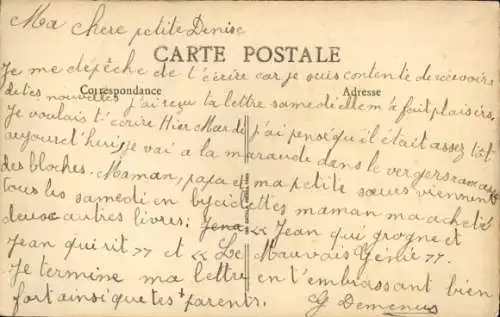 Ma chere petite Denise
CARTE POSTALE
Je me depêche de t'écrire car je suis contente de recevoirs
Correspondance
Adresse
de tes nouvelles j'ai reçu ta lettre samedi elle m'a fait plaisirs.
Je voulais t'écrire Hier Mardi j'ai pensé qu'il était assez tôt
aujourd'hui je vai a la maraude dans le vergers ramasser
des bloches. Maman, papa et ma petite sœurs viennent
tous les samedi en bycicettes maman ma acheté
deux autres livres: « Jean qui grogne et
Jean qui rit » et « Le Mauvais Génie ».
Je termine ma lettre en t'embrassant bien
fort ainsi que tes parents. G Demeneus